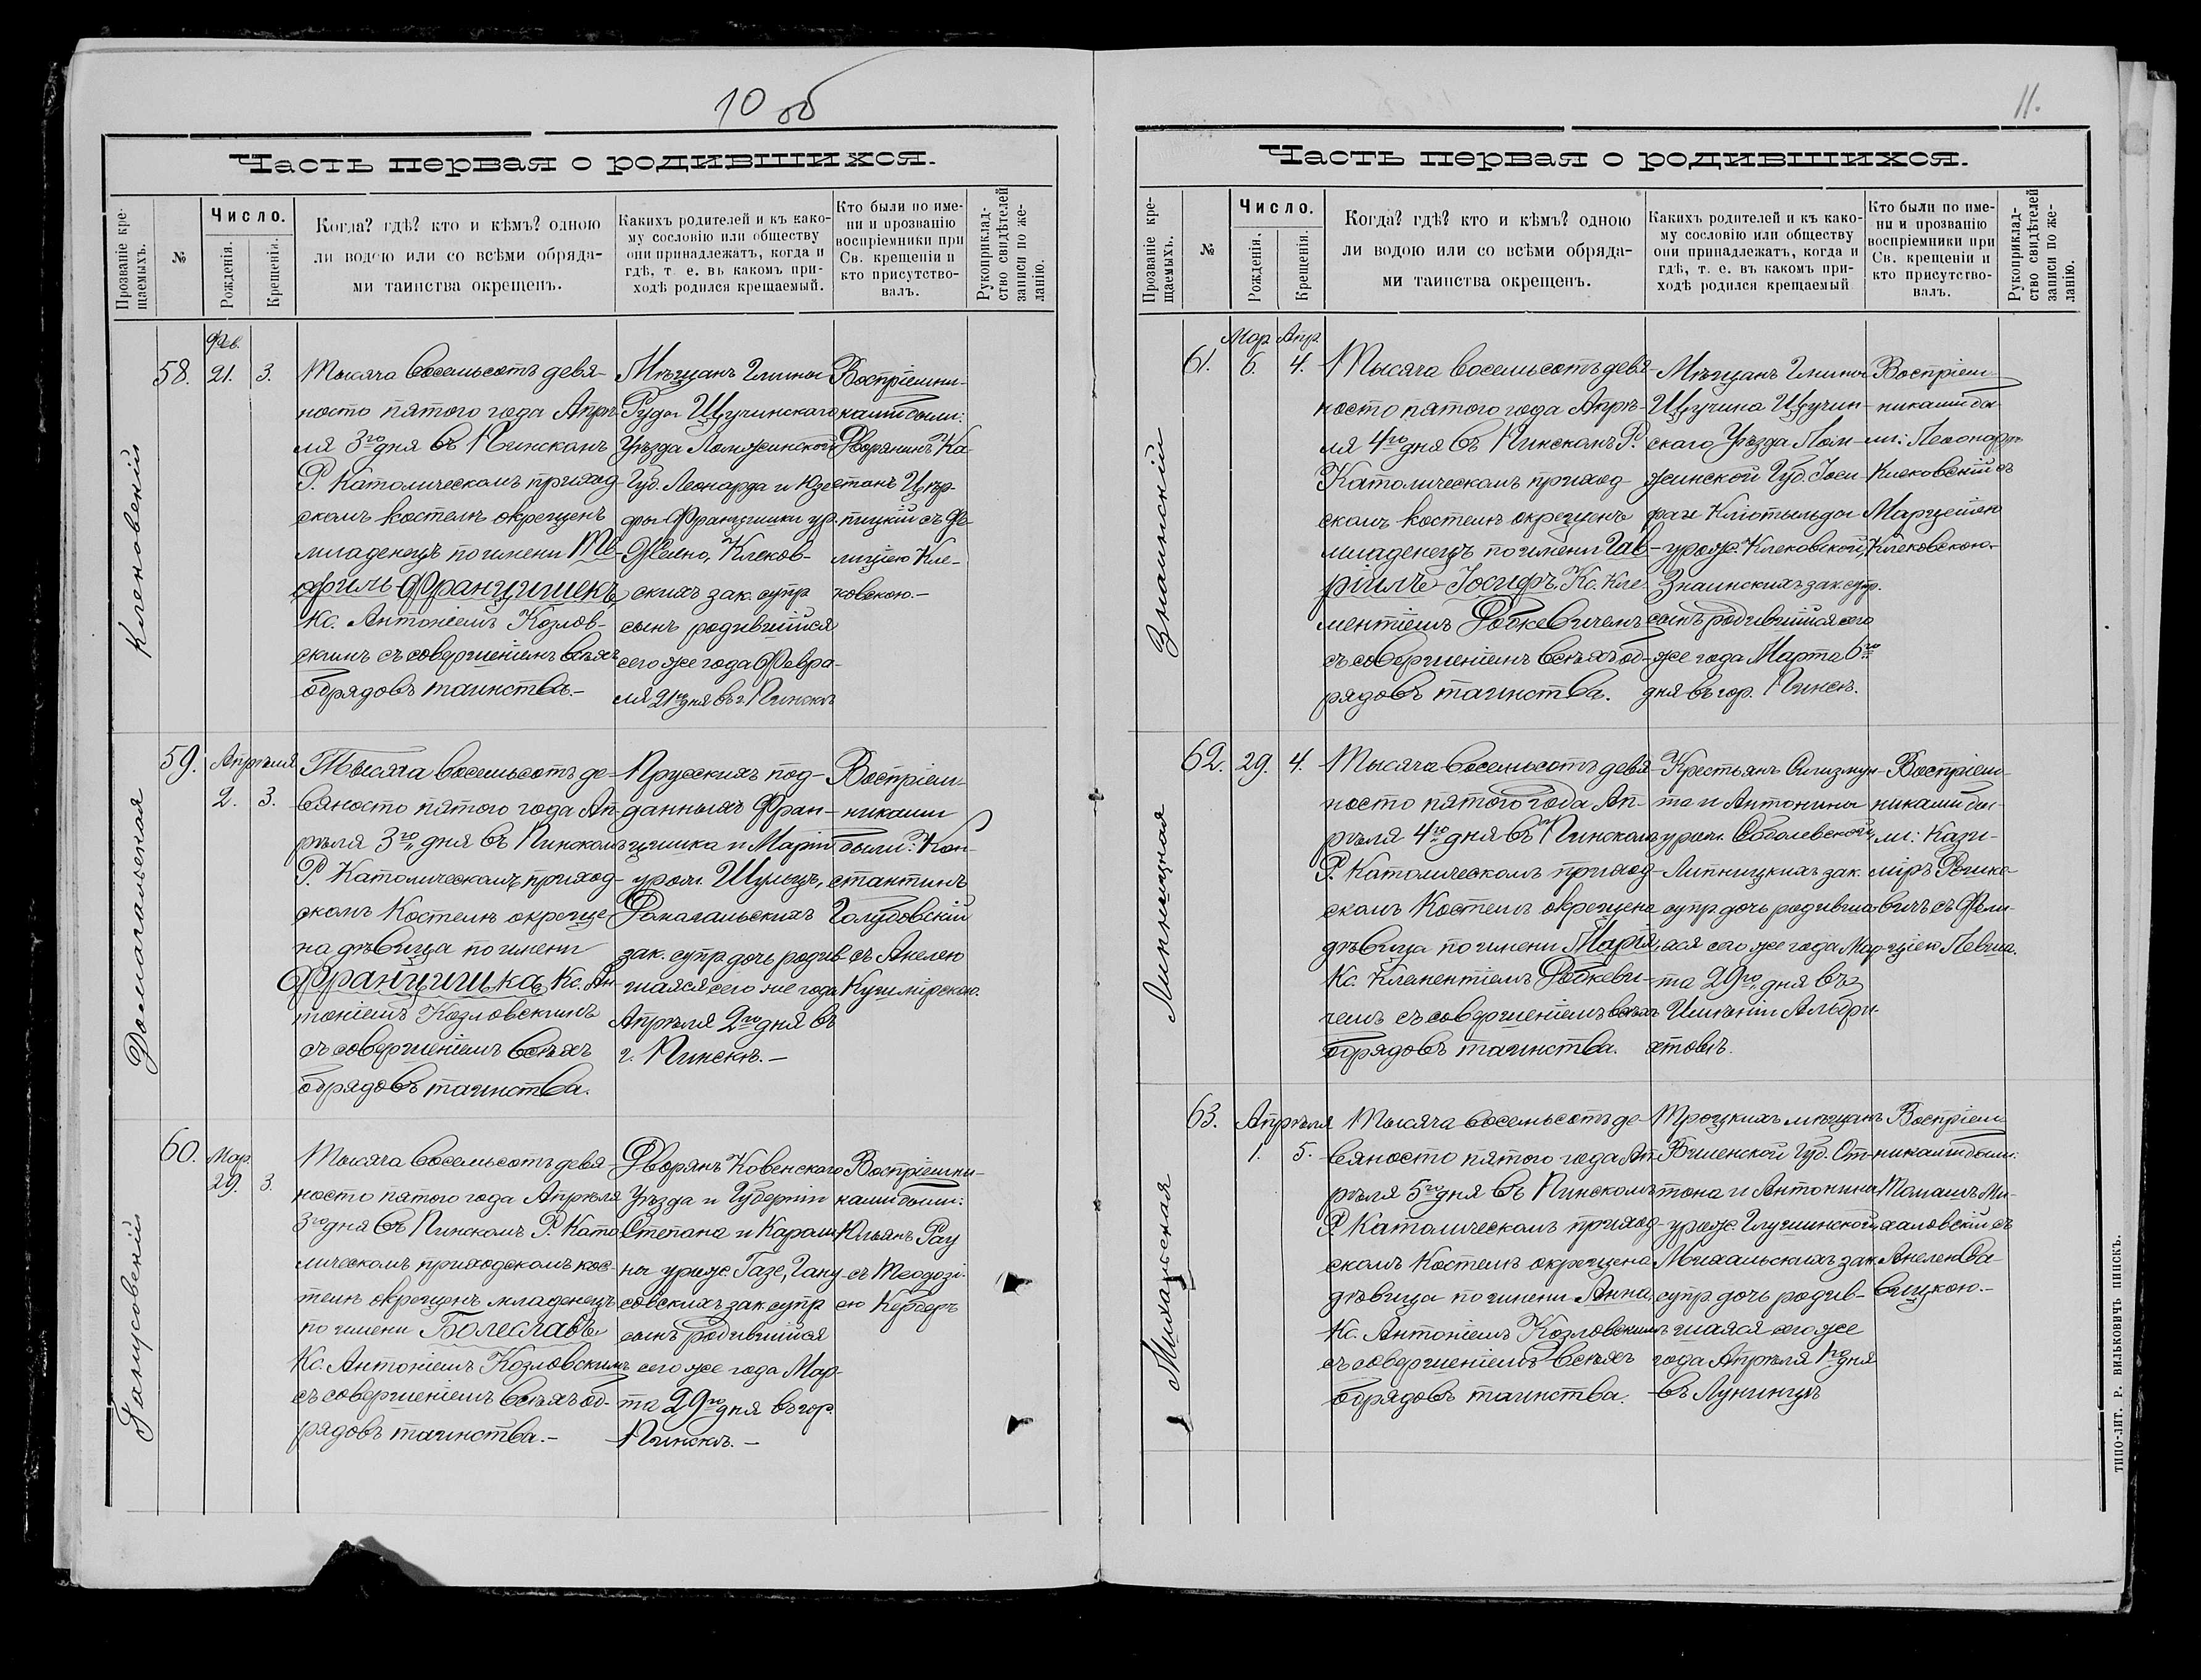 10 об
Часть первая о родившихся.
Прозваніе кре-
щаемыхъ.
№
Число.
Рожденія.
Крещенія.
Когда? гдѣ? кто и кѣмъ? одною
ли водою или со всѣми обряда-
ми таинства окрещенъ.
Какихъ родителей и къ како-
му сословію или обществу
они принадлежатъ, когда и
гдѣ, т. е. въ какомъ при-
ходѣ родился крещаемый.
Кто были по име-
ни и прозванію
воспріемники при
Св. крещеніи и
кто присутство-
валъ.
Рукоприклад-
ство свидѣтелей
записи по же-
ланію.
Клековскій
58.
Фев.
21.
3.
Тысяча восемьсотъ девя-
носто пятого года Апрѣ-
ля 3го дня въ Пинскомъ
Р. Католическомъ приход-
скомъ костелѣ окрещенъ
младенецъ по имени Те-
офиль-Францишекъ
Кс. Антоніемъ Козлов-
скимъ съ совершеніемъ всѣхъ
обрядовъ таинства.-
Мѣщанъ Гмины
Руда Щучинскаго
Уѣзда Ломжинской
Губ. Леонарда и Юзе-
фы Францишки ур.
Жейно, Клеков-
скихъ зак. супр
сынъ родившійся
сего же года Февра-
ля 21го дня въ г. Пинскѣ
Воспріемни-
ками были:
Дворянинъ Ка-
етанъ Цер-
пицкій съ Фе-
лиціею Кле-
ковскою.-
Домагальская
59.
Апрѣля
2.
3.
Тысяча восемьсотъ де-
вяносто пятого года Ап-
рѣля 3го дня въ Пинскомъ
Р. Католическомъ приход-
скомъ Костелѣ окреще-
на дѣвица по имени
Францишка, Кс. Ан-
тоніемъ Козловскимъ
съ совершеніемъ всѣхъ
обрядовъ таинства.
Прусскихъ под-
данныхъ Фран-
цишка и Маріи
урож. Шульцъ,
Домагальскихъ
зак. супр. дочь родив-
шаяся сего же года
Апрѣля 2го дня въ
г. Пинскѣ.-
Воспріем-
никами
были: Кон-
стантинъ
Голубовскій
съ Анелею
Кушмірскою.
Ганусовскій
60.
Мар.
29.
3.
Тысяча восемьсотъ девя-
носто пятого года Апрѣля
3го дня въ Пинскомъ Р. Като-
лическомъ приходскомъ кос-
телѣ окрещенъ младенецъ
по имени Болеславъ
Кс. Антоніемъ Козловскимъ
съ совершеніемъ всѣхъ об-
рядовъ таинства.-
Дворянъ Ковенскаго
Уѣзда и Губерніи
Степана и Кароли-
ны урож. Газе, Гану-
совскихъ зак. супр
сынъ родившійся
сего же года Мар-
та 29го дня въ гор.
Пинскѣ.-
Воспріемни-
ками были:
Юльянъ Рау
съ Теодозі-
ею Керберъ
11.
Часть первая о родившихся.
Прозваніе кре-
щаемыхъ.
№
Число.
Рожденія.
Крещенія.
Когда? гдѣ? кто и кѣмъ? одною
ли водою или со всѣми обряда-
ми таинства окрещенъ.
Какихъ родителей и къ како-
му сословію или обществу
они принадлежатъ, когда и
гдѣ, т. е. въ какомъ при-
ходѣ родился крещаемый
Кто были по име-
ни и прозванію
воспріемники при
Св. крещеніи и
кто присутство-
валъ.
Рукоприклад-
ство свидѣтелей
записи по же-
ланію.
Знаинскій
61.
Мар
6.
Апр
4.
Тысяча восемьсотъ девя-
носто пятого года Апрѣ-
ля 4го дня въ Пинскомъ Р.
Католическомъ приход-
скомъ костелѣ окрещенъ
младенецъ по имени Гав-
ріилъ-Іосифъ, Кс. Кле-
ментіемъ Робкевичемъ
съ совершеніемъ всѣхъ об-
рядовъ таинства.
Мѣщанъ Гмины
Щучина Щучин-
скаго Уѣзда Лом-
жинской Губ. Іоси-
фа и Клотыльды
урож. Клековской,
Знаинскихъ зак. супр.
сынъ родившійся сего
же года Марта 6го
дня въ гор. Пинскѣ.
Воспріем-
никами бы-
ли: Леонардъ
Клековскій съ
Марцелею
Клековскою.
Липницкая
62.
29.
4.
Тысяча восемьсотъ девя-
носто пятого года Ап-
рѣля 4го дня въ Пинскомъ
Р. Католическомъ приход-
скомъ Костелѣ окрещена
дѣвица по имени Марія,
Кс. Клементіемъ Робкеви-
чемъ съ совершеніемъ всѣхъ
обрядовъ таинства.
Крестьянъ Сигизмун-
та и Антонины
урож. Соболевской,
Липницкихъ зак.
супр. дочь родивша-
яся сего же года Мар-
та 29го дня въ
Имѣніи Альбри-
хтовѣ.
Воспріем-
никами бы-
ли: Кази-
міръ
съ Фели-
ціею
Михальская
63.
Апрѣля
1.
5.
Тысяча восемьсотъ де-
вяносто пятого года Ап-
рѣля 5го дня въ Пинскомъ
Р. Католическомъ приход-
скомъ Костелѣ окрещена
дѣвица по имени Анна,
Кс. Антоніемъ Козловскимъ
съ совершеніемъ всѣхъ
обрядовъ таинства.
Троцкихъ мѣщанъ
Виленской Губ. Ан-
тона и Антонины
урож. Глушинской,
Михальскихъ зак.
супр. дочь родив-
шаяся сего же
года Апрѣля 1го дня
въ Лунинцѣ
Воспріем-
никами были:
Томашъ Ми-
халовскій съ
Анелею Са-
вицкою.-
ТИПО-ЛИТ. Р. ВИЛЬКОВИЧЪ ПИНСКЪ.